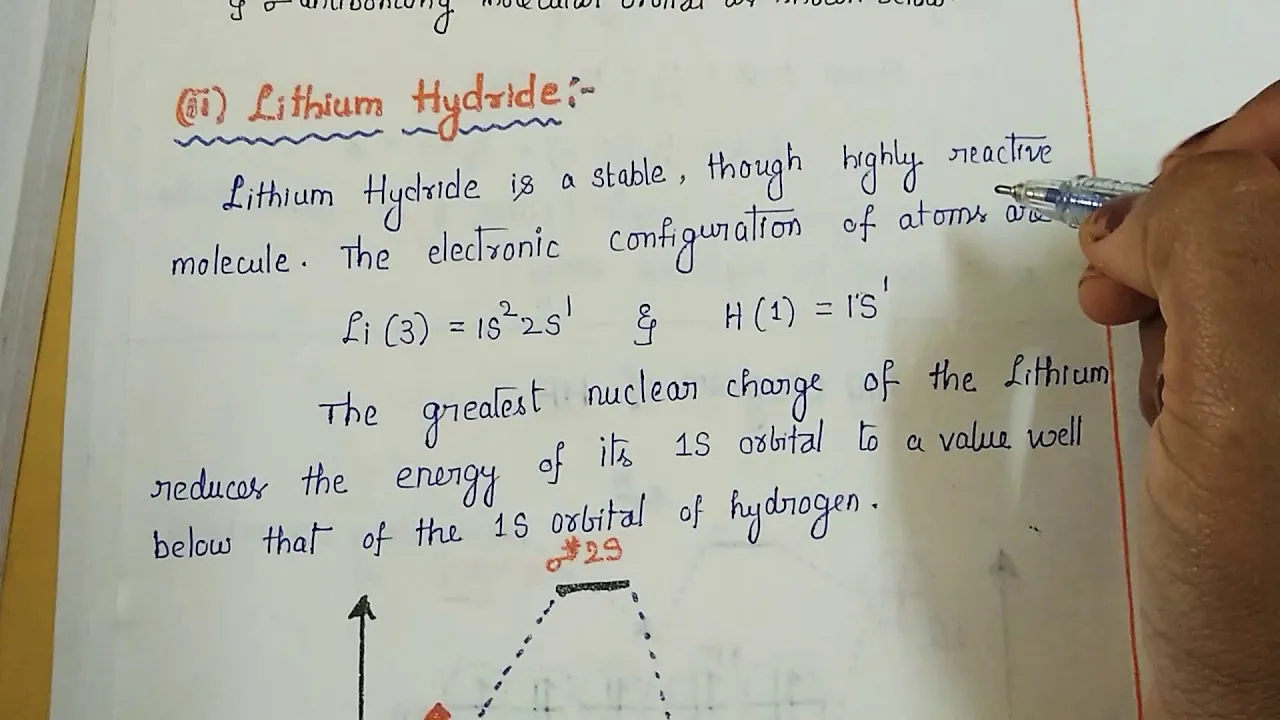 molecular orbital as shown below
(iii) Lithium Hydride :-
Lithium Hydride is a stable, though highly reactive
molecule. The electronic configuration of atoms are
Li (3) = 1S² 2S¹ & H (1) = 1S¹
The greatest nuclear charge of the Lithium
reduces the energy of its 1S orbital to a value well
below that of the 1S orbital of hydrogen.
σ*2S